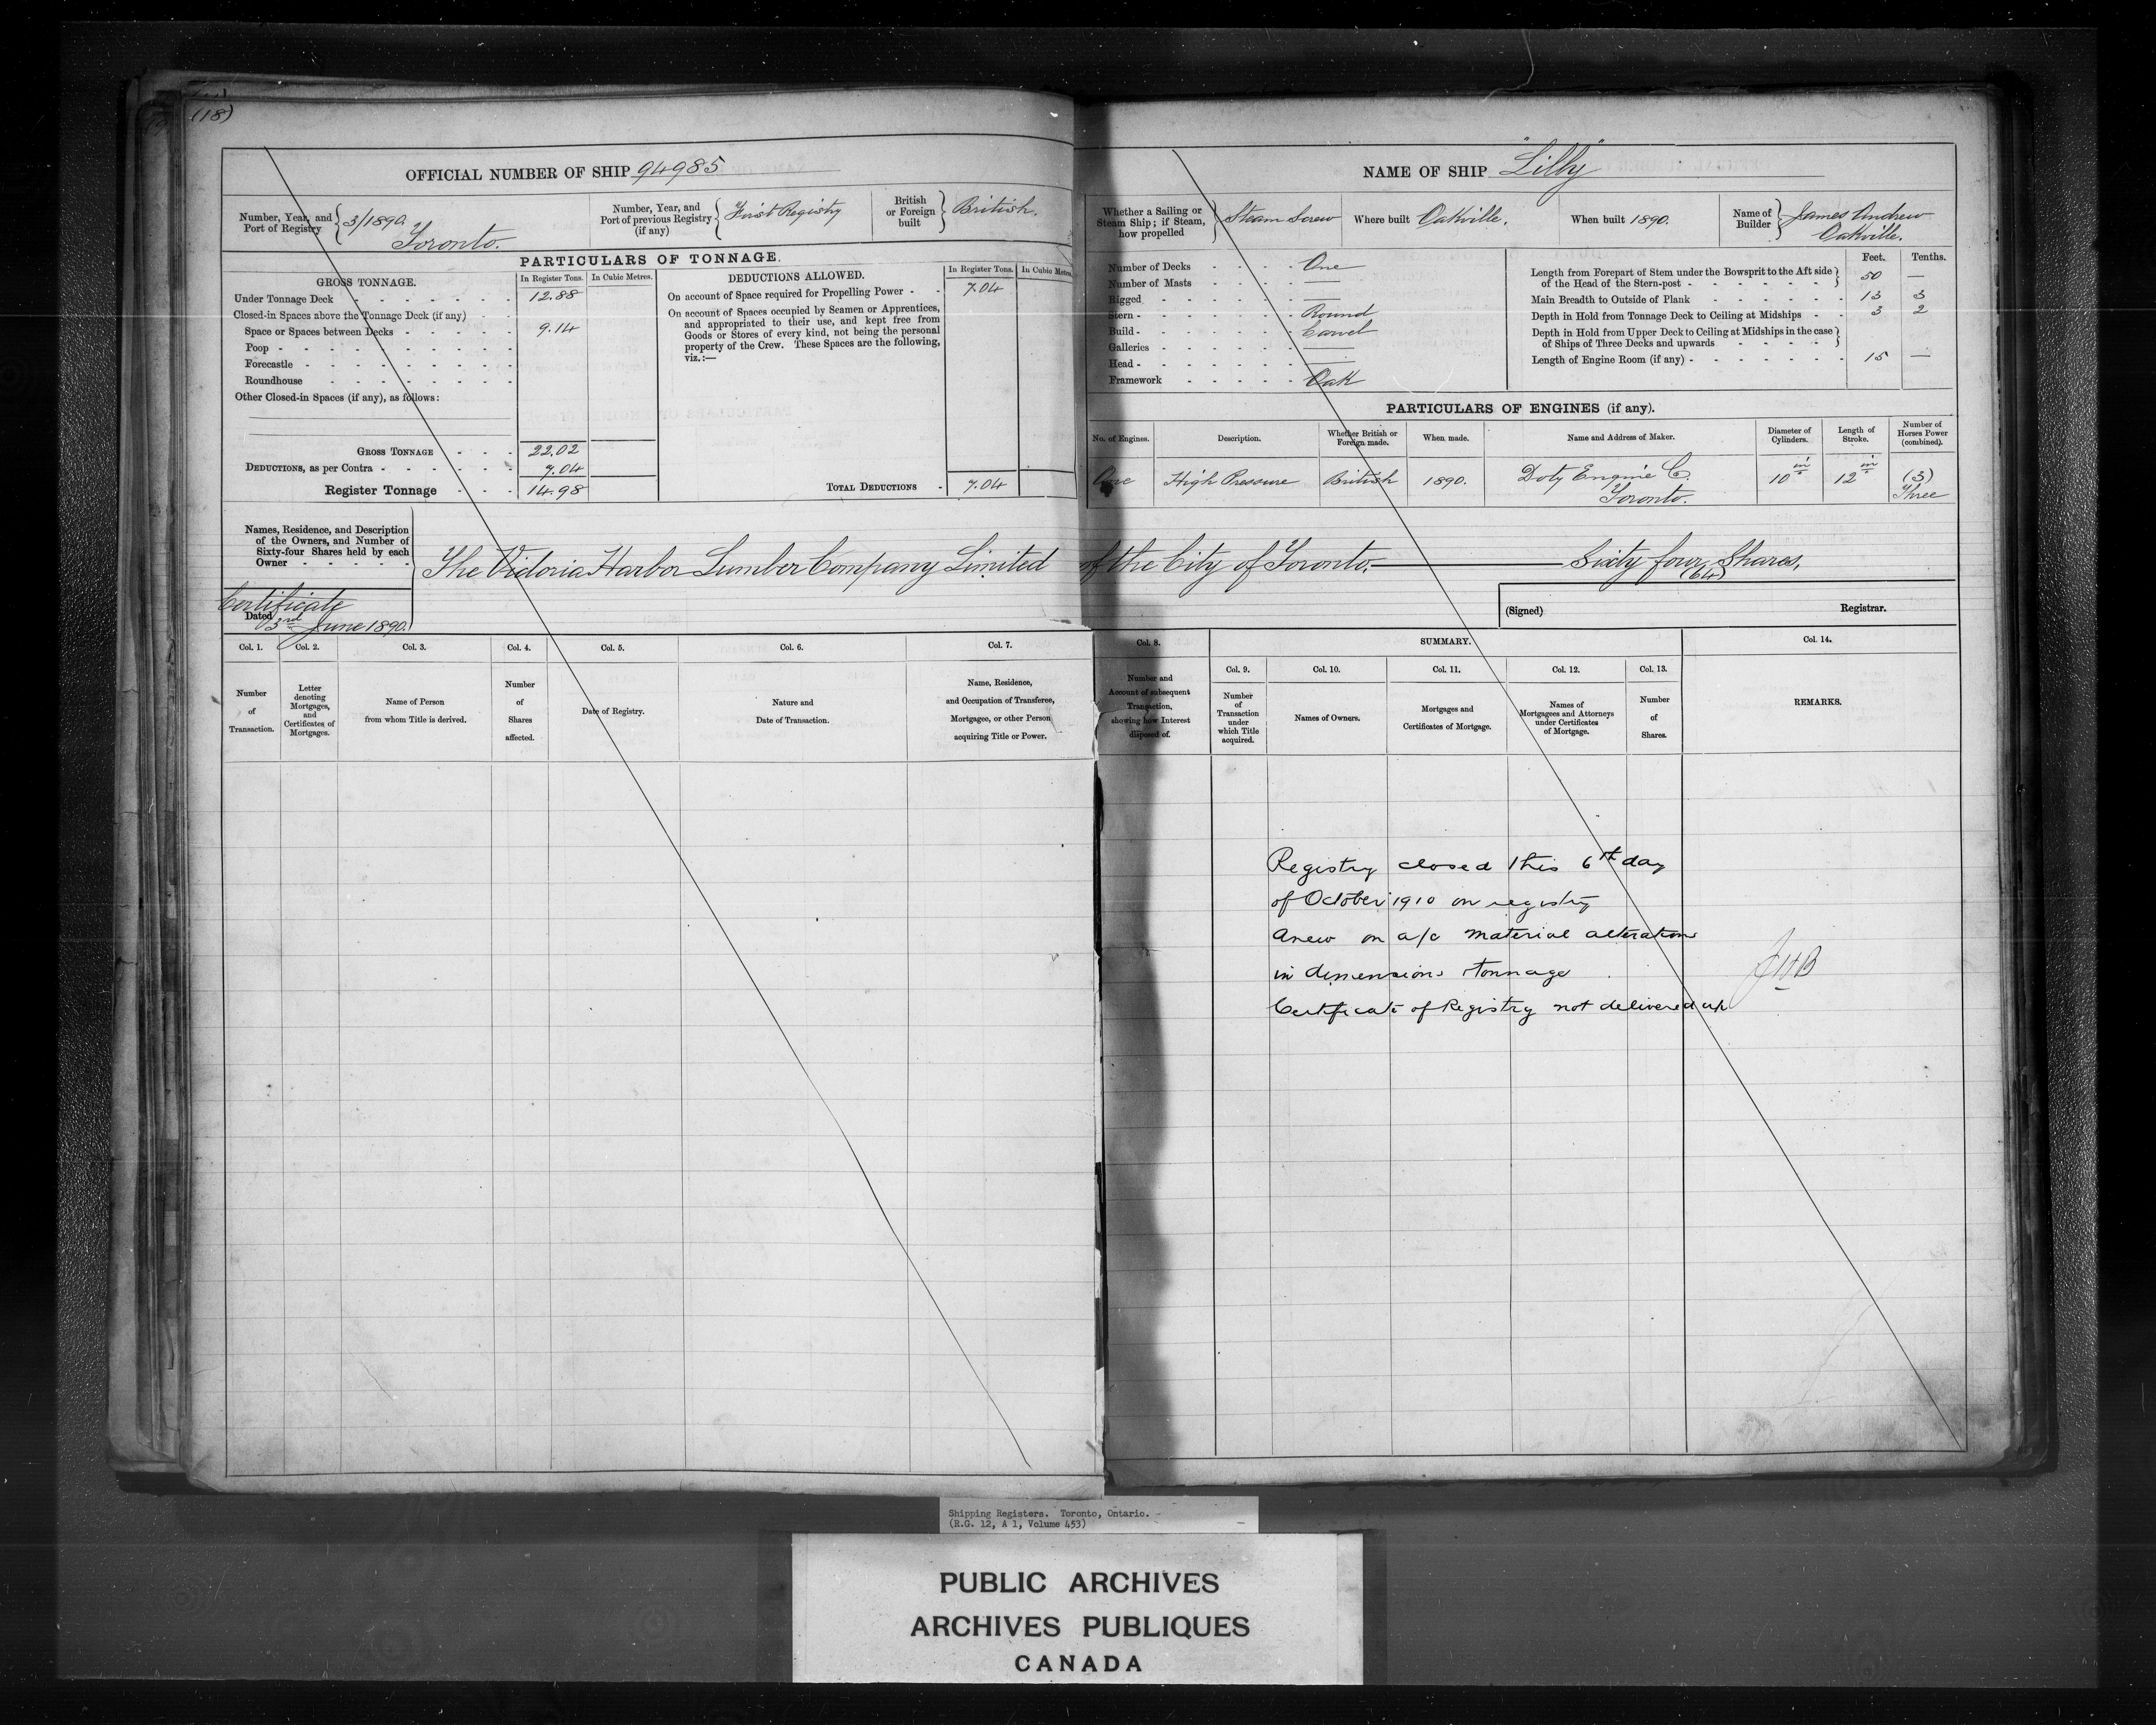 (18)
OFFICIAL NUMBER OF SHIP 94985
Number, Year, and Port of Registry 3/1890. Toronto.
Number, Year, and Port of previous Registry (if any) First Registry
British or Foreign built British.
PARTICULARS OF TONNAGE.
GROSS TONNAGE. In Register Tons. In Cubic Metres.
Under Tonnage Deck 12.88
Closed-in Spaces above the Tonnage Deck (if any)
Space or Spaces between Decks 9.14
Poop
Forecastle
Roundhouse
Other Closed-in Spaces (if any), as follows:
GROSS TONNAGE 22.02
DEDUCTIONS, as per Contra 7.04
Register Tonnage 14.98
DEDUCTIONS ALLOWED. In Register Tons. In Cubic Metres
On account of Space required for Propelling Power 7.04
On account of Spaces occupied by Seamen or Apprentices,
and appropriated to their use, and kept free from
Goods or Stores of every kind, not being the personal
property of the Crew. These Spaces are the following,
viz.:—
TOTAL DEDUCTIONS 7.04
NAME OF SHIP "Lilly"
Whether a Sailing or Steam Ship; if Steam, how propelled Steam Screw
Where built Oakville.
When built 1890.
Name of Builder James Andrew Oakville.
Number of Decks One
Number of Masts —
Rigged —
Stern Round
Build Carvel
Galleries —
Head —
Framework Oak
Feet. Tenths.
Length from Forepart of Stem under the Bowsprit to the Aft side
of the Head of the Stern-post 50 —
Main Breadth to Outside of Plank 13 3
Depth in Hold from Tonnage Deck to Ceiling at Midships 3 2
Depth in Hold from Upper Deck to Ceiling at Midships in the case
of Ships of Three Decks and upwards
Length of Engine Room (if any) 15 —
PARTICULARS OF ENGINES (if any).
No. of Engines. Description. Whether British or Foreign made. When made. Name and Address of Maker. Diameter of Cylinders. Length of Stroke. Number of Horses Power (combined).
One High Pressure British 1890. Doty Engine C. Toronto. 10 in 12 in (3) Three
Names, Residence, and Description
of the Owners, and Number of
Sixty-four Shares held by each
Owner
The Victoria Harbor Lumber Company Limited of the City of Toronto. Sixty four Shares.
(64)
Certificate
Dated 3rd June 1890.
(Signed) Registrar.
Col. 1. Col. 2. Col. 3. Col. 4. Col. 5. Col. 6. Col. 7. Col. 8. SUMMARY. Col. 14.
Col. 9. Col. 10. Col. 11. Col. 12. Col. 13.
Number of Transaction.
Letter denoting Mortgages, and Certificates of Mortgages.
Name of Person from whom Title is derived.
Number of Shares affected.
Date of Registry.
Nature and Date of Transaction.
Name, Residence, and Occupation of Transferee, Mortgagee, or other Person acquiring Title or Power.
Number and Account of subsequent Transaction, showing how Interest disposed of.
Number of Transaction under which Title acquired.
Names of Owners.
Mortgages and Certificates of Mortgage.
Names of Mortgagees and Attorneys under Certificates of Mortgage.
Number of Shares.
REMARKS.
Registry closed this 6th day
of October 1910 on registry
anew on a/c material alterations
in dimensions & tonnage
Certificate of Registry not delivered up
Shipping Registers. Toronto, Ontario.
(R.G. 12, A 1, Volume 453)
PUBLIC ARCHIVES
ARCHIVES PUBLIQUES
CANADA